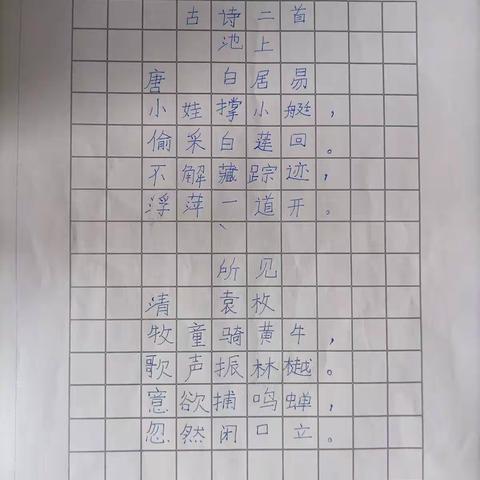 古诗二首
池上
唐 白居易
小娃撑小艇，
偷采白莲回。
不解藏踪迹，
浮萍一道开。
所见
清 袁枚
牧童骑黄牛，
歌声振林樾。
意欲捕鸣蝉，
忽然闭口立。